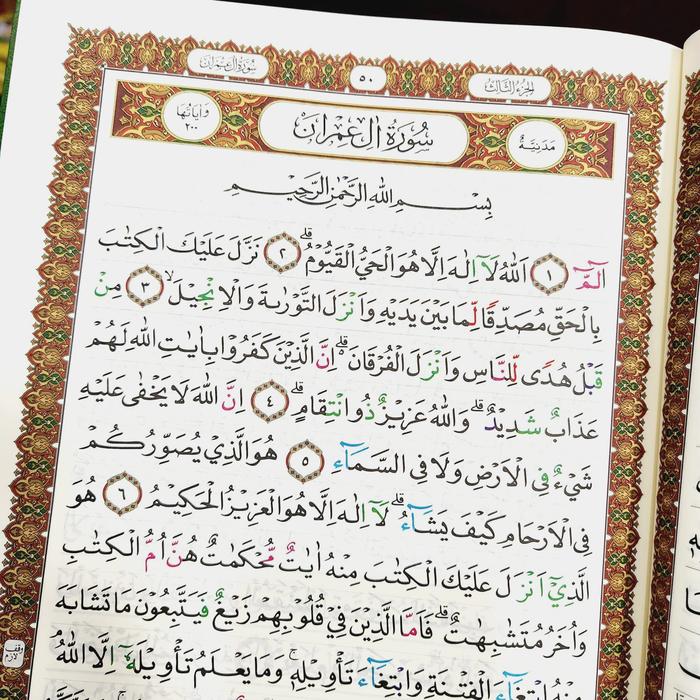 سُورَةُ اٰلِ عِمْرَانَ
٥٠
اَلْجُزْءُ الثَّالِثُ
مَدَنِيَّةٌ
سُورَةُ اٰلِ عِمْرَانَ
وَاٰيَاتُهَا
٢٠٠
بِسْمِ اللّٰهِ الرَّحْمٰنِ الرَّحِيْمِ
الٓمّٓ ۝١ اَللّٰهُ لَآ اِلٰهَ اِلَّا هُوَ الْحَيُّ الْقَيُّوْمُۗ ۝٢ نَزَّلَ عَلَيْكَ الْكِتٰبَ
بِالْحَقِّ مُصَدِّقًا لِّمَا بَيْنَ يَدَيْهِ وَاَنْزَلَ التَّوْرٰىةَ وَالْاِنْجِيْلَۙ ۝٣ مِنْ
قَبْلُ هُدًى لِّلنَّاسِ وَاَنْزَلَ الْفُرْقَانَۗ اِنَّ الَّذِيْنَ كَفَرُوْا بِاٰيٰتِ اللّٰهِ لَهُمْ
عَذَابٌ شَدِيْدٌۗ وَاللّٰهُ عَزِيْزٌ ذُو انْتِقَامٍۗ ۝٤ اِنَّ اللّٰهَ لَا يَخْفٰى عَلَيْهِ
شَيْءٌ فِى الْاَرْضِ وَلَا فِى السَّمَاۤءِ ۝٥ هُوَ الَّذِيْ يُصَوِّرُكُمْ
فِى الْاَرْحَامِ كَيْفَ يَشَاۤءُۗ لَآ اِلٰهَ اِلَّا هُوَ الْعَزِيْزُ الْحَكِيْمُ ۝٦ هُوَ
الَّذِيْٓ اَنْزَلَ عَلَيْكَ الْكِتٰبَ مِنْهُ اٰيٰتٌ مُّحْكَمٰتٌ هُنَّ اُمُّ الْكِتٰبِ
وَاُخَرُ مُتَشٰبِهٰتٌۗ فَاَمَّا الَّذِيْنَ فِيْ قُلُوْبِهِمْ زَيْغٌ فَيَتَّبِعُوْنَ مَا تَشَابَهَ
مِنْهُ ابْتِغَاۤءَ الْفِتْنَةِ وَابْتِغَاۤءَ تَأْوِيْلِهٖۚ وَمَا يَعْلَمُ تَأْوِيْلَهٗٓ اِلَّا اللّٰهُۘ
وقف
لازم